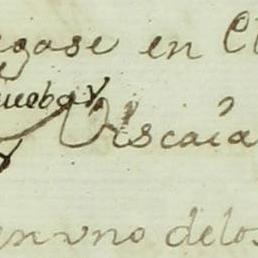 egase en
uebar
Viscaia
en vno delos